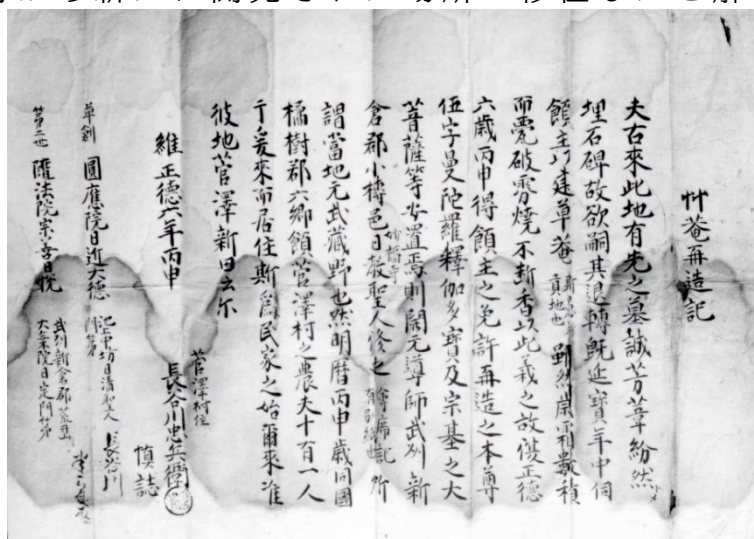 艸菴再造記
夫右來此地有先之墓誠芳葦紛然
埋石碑故欲嗣其退轉既延寶年中伺
領主乃建草菴 貢地也 雖然歳霜數積
而甍破雪燒不斷香以此義之故償正德
六歳丙申得領主之免許再造之本尊
伍字曼陀羅釋伽多寶及宗基之大
菩薩等安置焉則開元導師武州新
倉郡小榑邑妙福寺日教聖人修之 所
謂當地元武藏野也然明曆丙申歳同國
橘樹郡六郷領菅澤村之農夫十有一人
于爰來而居住斯爲民家之始爾來准
彼地菅澤新田云尓
維正德六年丙申
菅澤村住
長谷川忠兵衛
慎誌
草創 圓應院日近大德 長谷川
第二世 隨法院宗善日悦 武州新倉郡
大乘院日定門弟